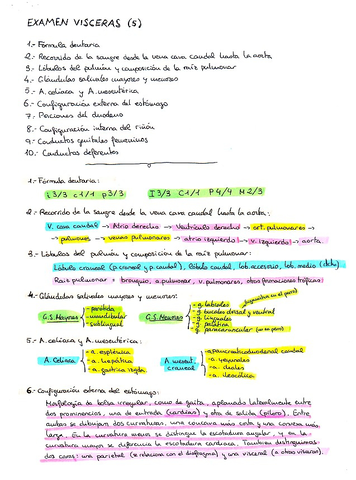 EXAMEN VISCERAS (5)
1.- Fórmula dentaria
2.- Recorrido de la sangre desde la vena cava caudal hasta la aorta
3.- Lóbulos del pulmón y composición de la raíz pulmonar
4.- Glándulas salivales mayores y menores
5.- A. celíaca y A. mesentérica
6.- Configuración externa del estómago
7.- Porciones del duodeno
8.- Configuración interna del riñón
9.- Conductos genitales femeninos
10.- Conductos deferentes
1.- Fórmula dentaria:
i 3/3 c 1/1 p 3/3 I 3/3 C 1/1 P 4/4 M 2/3
2.- Recorrido de la sangre desde la vena cava caudal hasta la aorta:
V. cava caudal → Atrio derecho → Ventrículo derecho → art. pulmonares →
→ pulmones → venas pulmonares → atrio izquierdo → v. izquierdo → aorta.
3.- Lóbulos del pulmón y composición de la raíz pulmonar:
Lóbulo craneal (p. craneal y p. caudal), lóbulo caudal, lob. accesorio, lob. medio (dcho)
Raíz pulmonar = bronquio, a. pulmonar, v. pulmonares, otras formaciones
4.- Glándulas salivales mayores y menores:
G.S. Mayores
- parótida
- mandibular
- sublingual
G.S. Menores
- g. labiales
- g. bucales dorsal y ventral
- g. linguales
- g. palatina
5.- A. celíaca y A. mesentérica:
A. Celíaca
- a. esplénica
- a. hepática
- a. gástrica izqda.
A. mesent. craneal
- a. pancreaticoduodenal caudal
- a. yeyunales
- a. ileales
- a. ileocólica
6.- Configuración externa del estómago:
Morfología de bolsa irregular, como de gaita, aplanado lateralmente entre
dos prominencias, una de entrada (cardias) y otra de salida (píloro). Entre
ambas se dibujan dos curvaturas, una cóncava más corta y una convexa más
larga. En la curvatura mayor se distingue la escotadura angular, y en la
curvatura mayor se diferencia la escotadura cardiaca. También distinguimos
dos caras: una parietal (se relaciona con el diafragma) y una visceral (a otras vísceras).